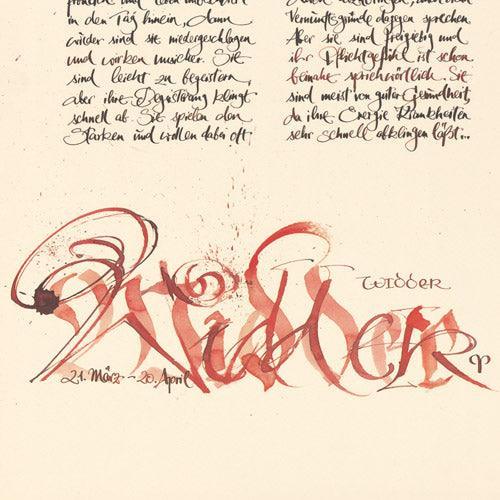 in den Tag hinein, dann
wieder sind sie niedergeschlagen
und wirken unsicher. Sie
sind leicht zu begeistern,
aber ihre Begeisterung klingt
schnell ab. Sie spielen den
Starken und wollen dabei oft
Vernunftsgründe dagegen sprechen.
Aber sie sind freigiebig und
ihr Pflichtgefühl ist schon
beinahe sprichwörtlich. Sie
sind meist von guter Gesundheit,
da ihre Energie Krankheiten
sehr schnell abklingen läßt...
Widder
Widder
21. März -- 20. April
♈